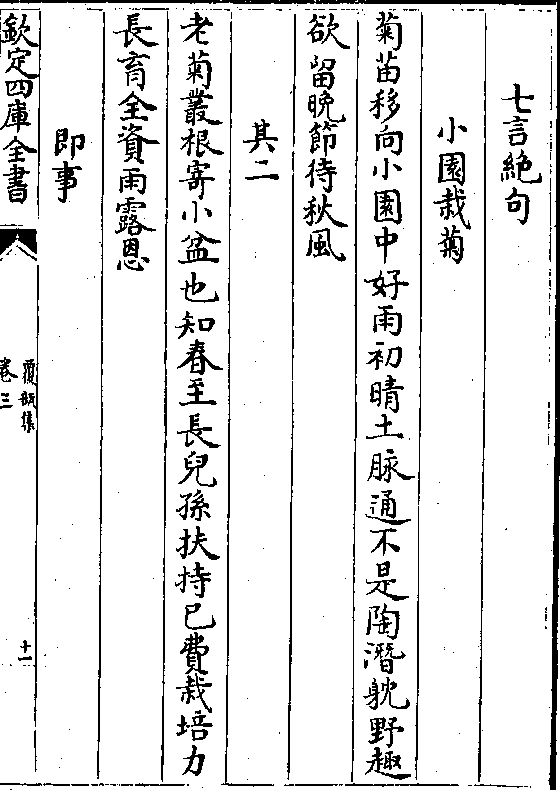 七言絶句
小園栽菊
菊苗移向小園中好雨初晴土脉通不是陶潛躭野趣
欲留晩節待秋風
其二
老菊叢根寄小盆也知春至長兒孫扶持已費栽培力
長育全資雨露恩
即事
欽定四庫全書
覆瓿集
卷三
十一